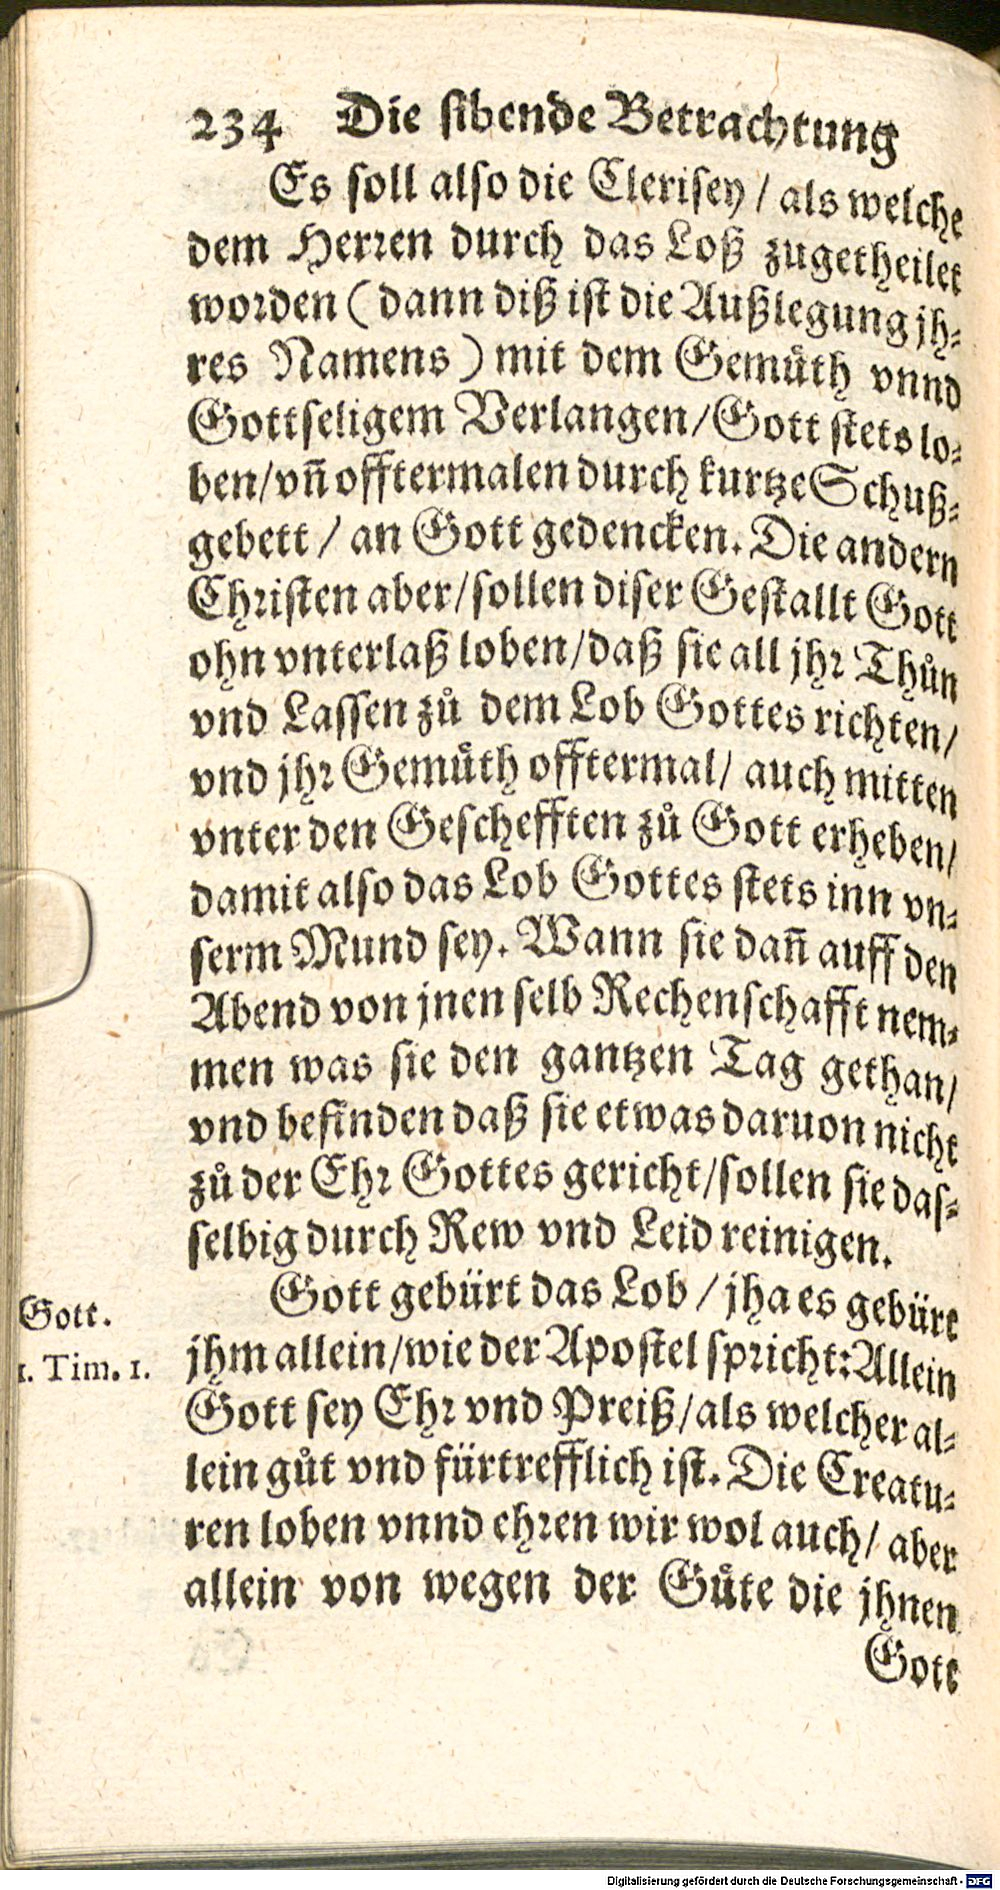 234 Die sibende Betrachtung
Es soll also die Clerisey / als welche
dem Herren durch das Loß zugetheilet
worden ( dann diß ist die Außlegung jh-
res Namens ) mit dem Gemuͤth vnnd
Gottseligem Verlangen / Gott stets lo-
ben / vn̄ offtermalen durch kurtze Schuß-
gebett / an Gott gedencken. Die andern
Christen aber / sollen diser Gestallt Gott
ohn vnterlaß loben / daß sie all jhr Thůn
vnd Lassen zů dem Lob Gottes richten /
vnd jhr Gemuͤth offtermal / auch mitten
vnter den Geschefften zů Gott erheben /
damit also das Lob Gottes stets inn vn-
serm Mund sey. Wann sie dan̄ auff den
Abend von jnen selb Rechenschafft nem-
men was sie den gantzen Tag gethan /
vnd befinden daß sie etwas daruon nicht
zů der Ehr Gottes gericht / sollen sie das-
selbig durch Rew vnd Leid reinigen.
Gott gebürt das Lob / jha es gebürt
Gott.
jhm allein / wie der Apostel spricht: Allein
1. Tim. 1.
Gott sey Ehr vnd Preiß / als welcher al-
lein gůt vnd fürtrefflich ist. Die Creatu-
ren loben vnnd ehren wir wol auch / aber
allein von wegen der Guͤte die jhnen
Gott
Digitalisierung gefördert durch die Deutsche Forschungsgemeinschaft - DFG